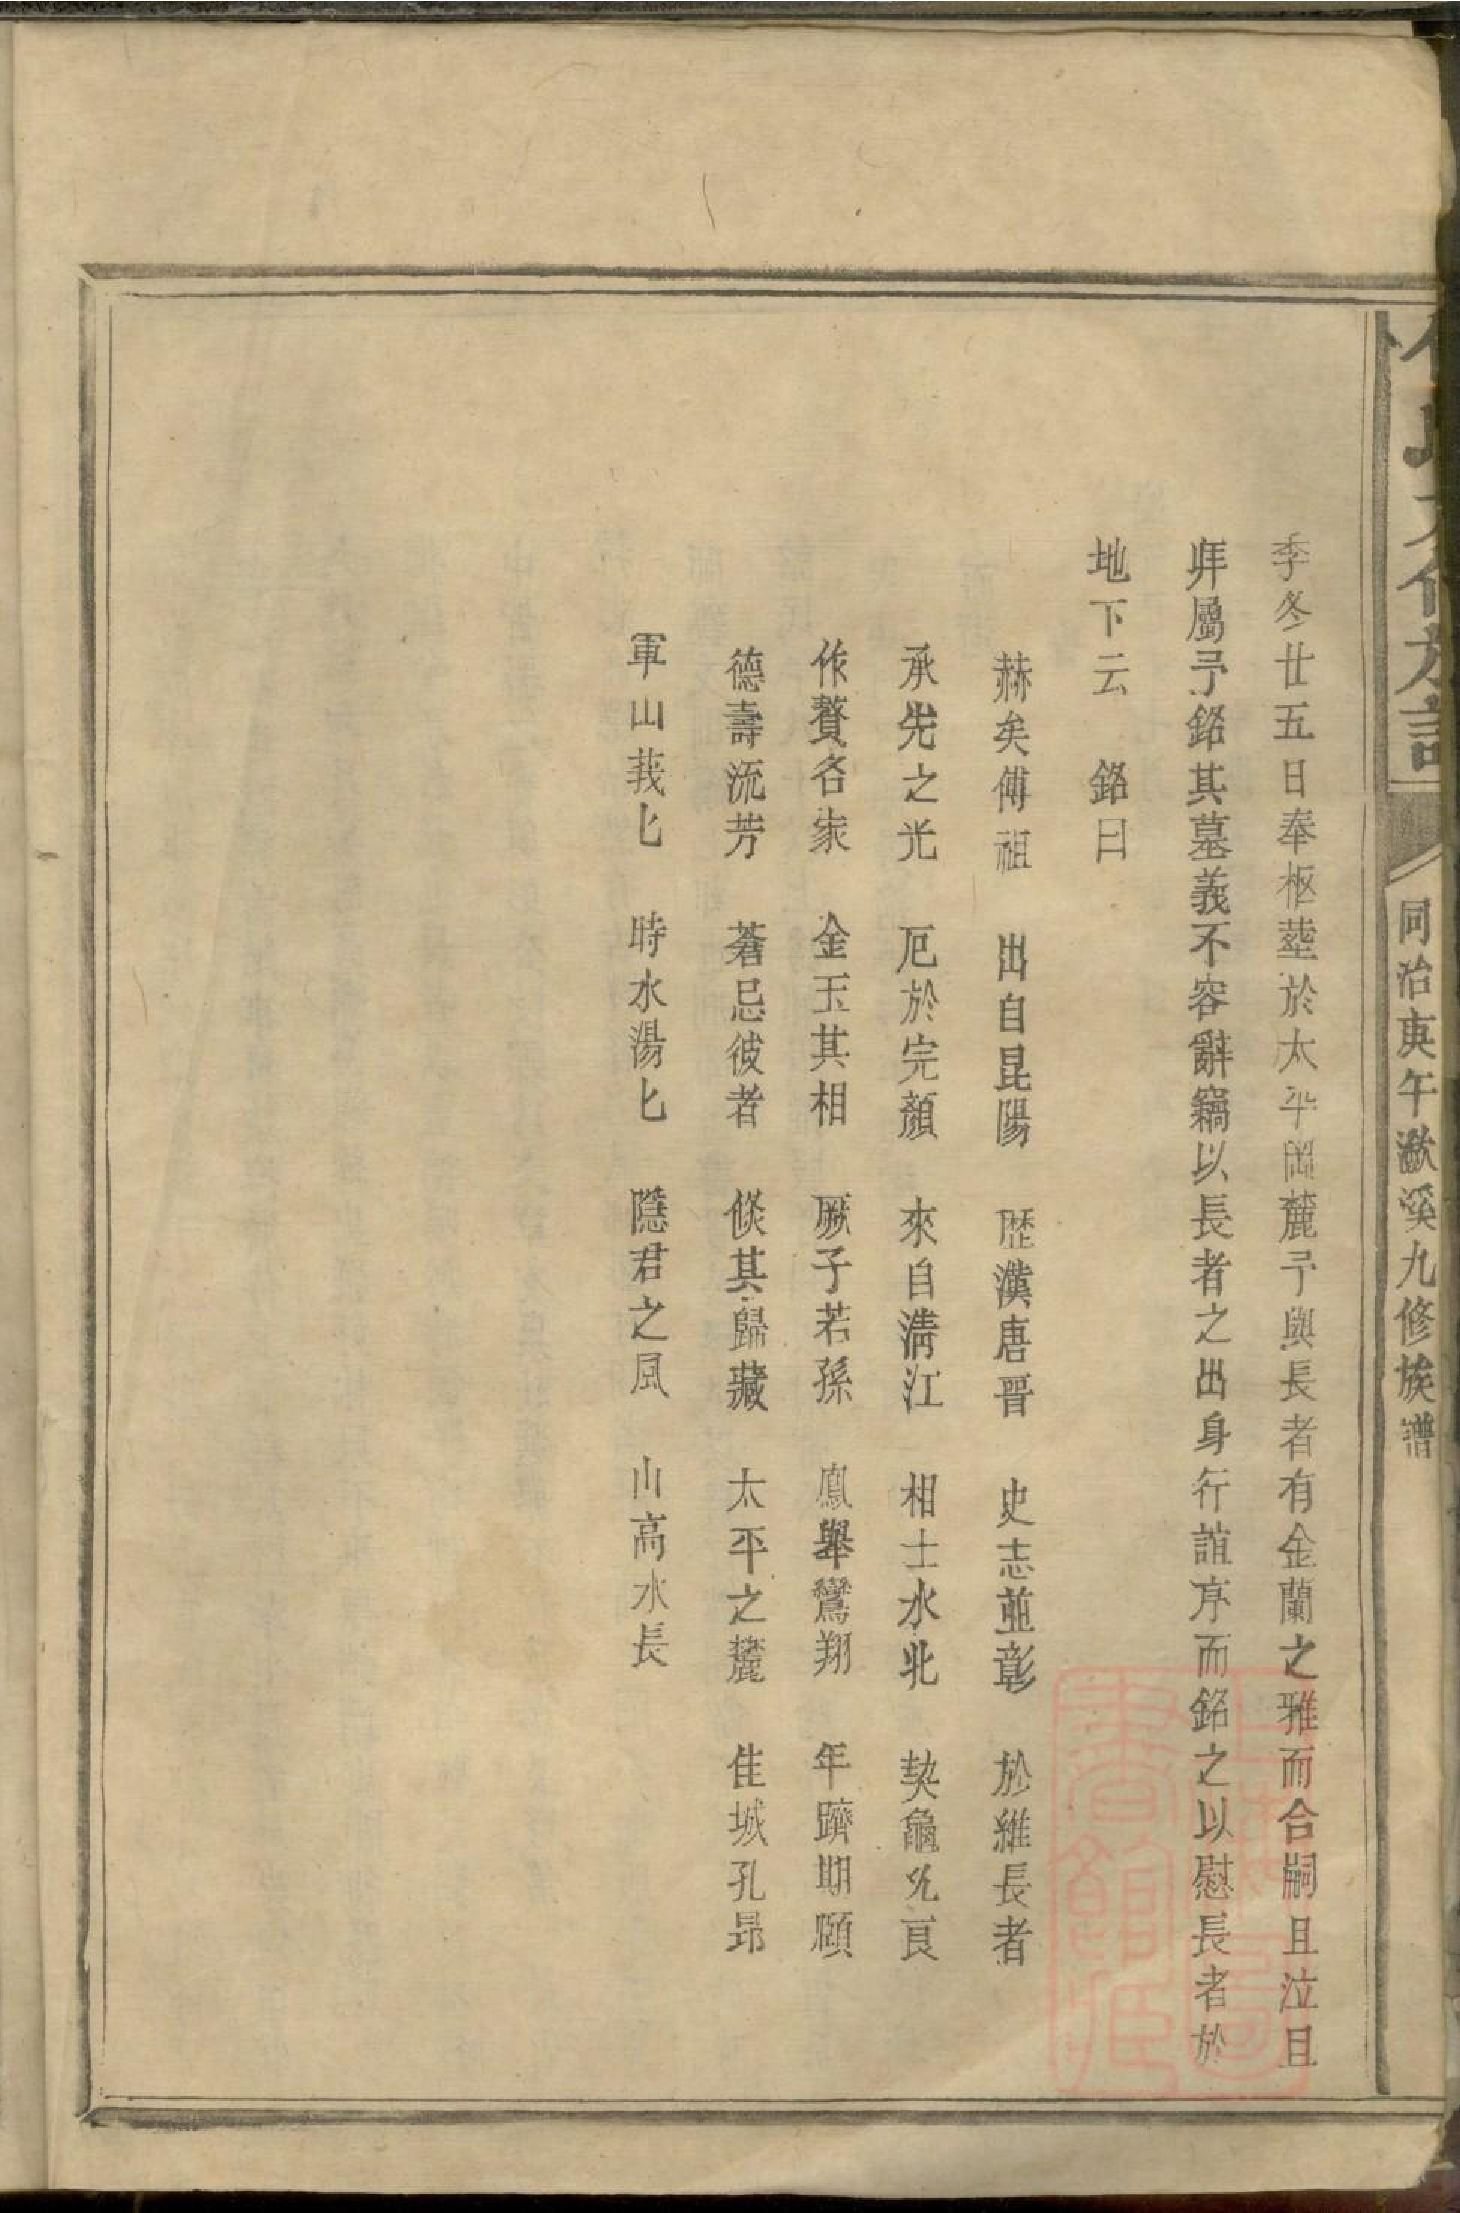 同治庚午漖溪九修族譜
季冬廿五日奉柩塟於太平岡麓予與長者有金蘭之雅而合嗣且泣且
拜屬予銘其墓義不容辭竊以長者之出身行誼序而銘之以慰長者於
地下云　銘曰
赫矣傅祖　出自昆陽　歷漢唐晋　史志並彰　於維長者
承先之光　厄於完顏　來自清江　相土水北　契龜允良
作贅名家　金玉其相　厥子若孫　鳳舉鸞翔　年躋期頤
德壽流芳　著忌彼者　倐其歸藏　太平之麓　佳城孔昂
軍山莪匕　時水湯匕　隱君之風　山高水長